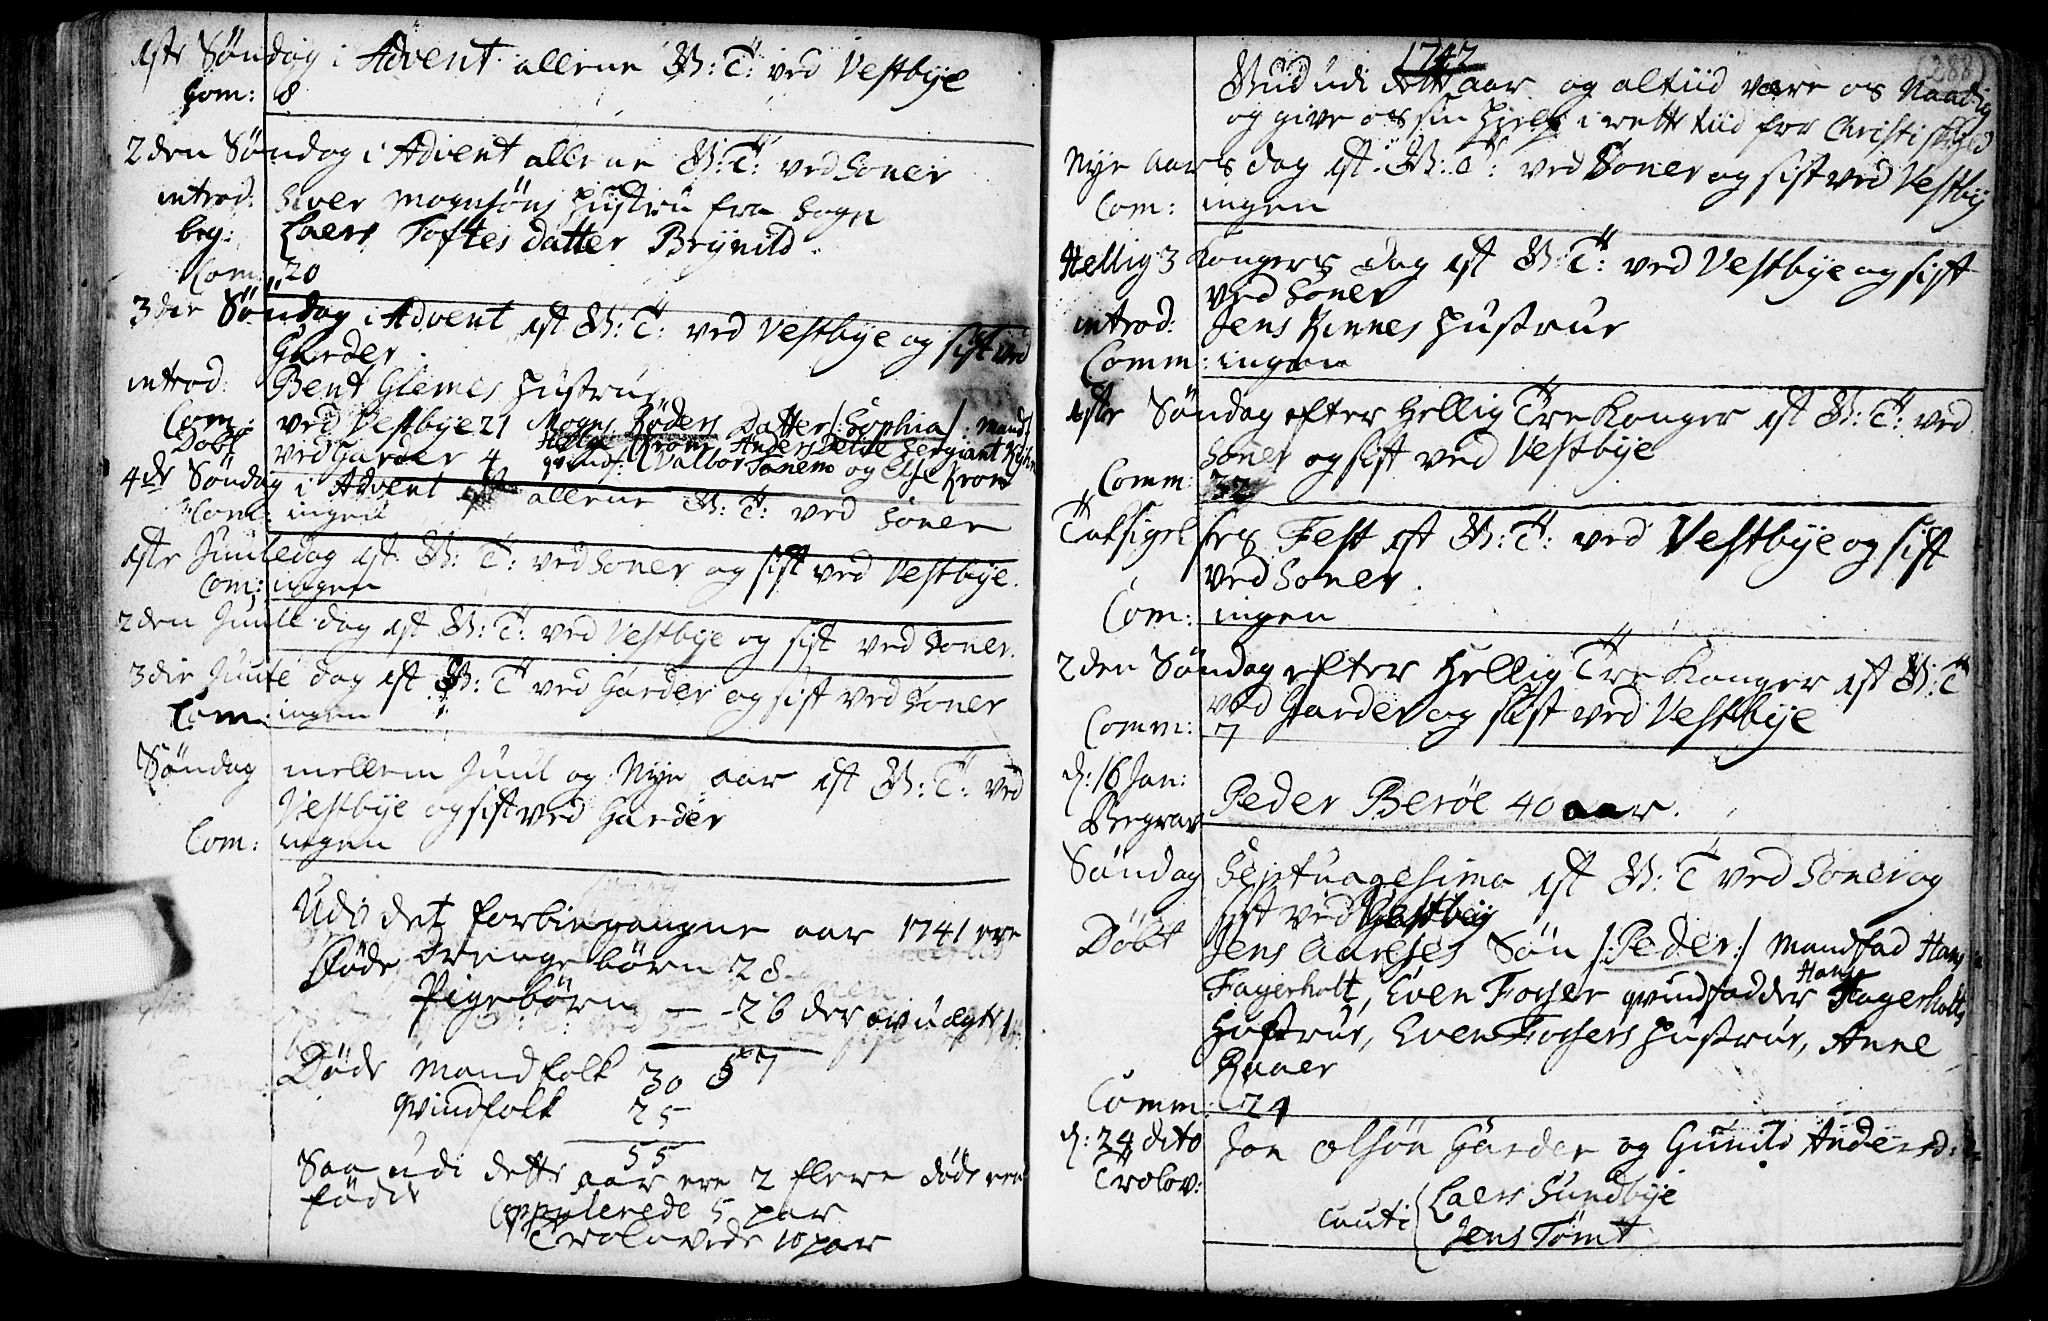 1ste Søndag i Advent allene G: T: ved Vestbye
Com: 8
2den Søndag i Advent allene G: T: ved Soner
introd: Iver Mogensøns Hustru fra Sogn
beg: Laers Toftes datter Brynild
Com: 20
3die Søndag i Advent 1st G: T: ved Vestbye og sist ved
Garder
introd: Bent Glemes Hustrue
Com: ved Vestbye 21 Mogns Røders Datter /:Sophia/: mandf
Døbt ved Garder 4 Helge Krom, Anders Delie Sergiant
qvindf: Valbor Sanem og Else Krom
4de Søndag i Advent allene G: T: ved Soner
Com: ingen
1ste Juuledag 1st G: T: ved Soner og sist ved Vestbye.
Com: ingen
2den Juule dag 1st G: T: ved Vestbye og sist ved Soner.
3die Juule dag 1st G: T: ved Garder og sist ved Soner
Com: ingen
Søndag mellem Juul og Nye aar 1st G: T: ved
Vestbye og sist ved Garder
Com: ingen
Udi det forbiegangne aar 1741 ere
Føde Drenge børn 28
Pigebørn — 26 der av uægte 1
57
Døde Mandfolk 30
qvindfolk 25
55
Saa udi dette aar ere 2 flere døde end
fødde
Copulerede 5 par
Trolovede 10 par
1742
288
Gud udi dette aar og altiid være os Naadig
og give os sin Hielp i rette tiid for Christi skyld
Nye aars dag 1st G: T: ved Soner og sist ved Vestby
Com: ingen
Hellig 3 Kongers dag 1st G: T: ved Vestbye og sist
ved Soner
introd: Jens Kinnes Hustrue
Comm: ingen
1ste Søndag efter Hellig Tre Konger 1st G: T: ved
Soner og sist ved Vestbye
Comm: 32
Taksigelses Fest 1st G: T: ved Vestbye og sist
ved Soner.
Com: ingen
2den Søndag efter Hellig Tre Konger 1st G: T
ved Garder og sist ved Vestbye
Comm: 7
d: 16 Jan:
Begrav Peder Berøe 40 aar.
Søndag Septuagesima 1st G: T ved Soner og
sist ved Vestbye
Døbt Jens Aareses Søn /:Peder:/ Mandfad Hans
Fagerholt, Even Foser qvindfadder Hans Fagerholts
Hustrue, Even Fosers Hustrue, Anne
Kaaer
Comm: 24
d: 24 dito Jon Olsøn Garder og Gunild Andersd:
Trolov:
Cauti Laers Sundbye
Jens Tømt